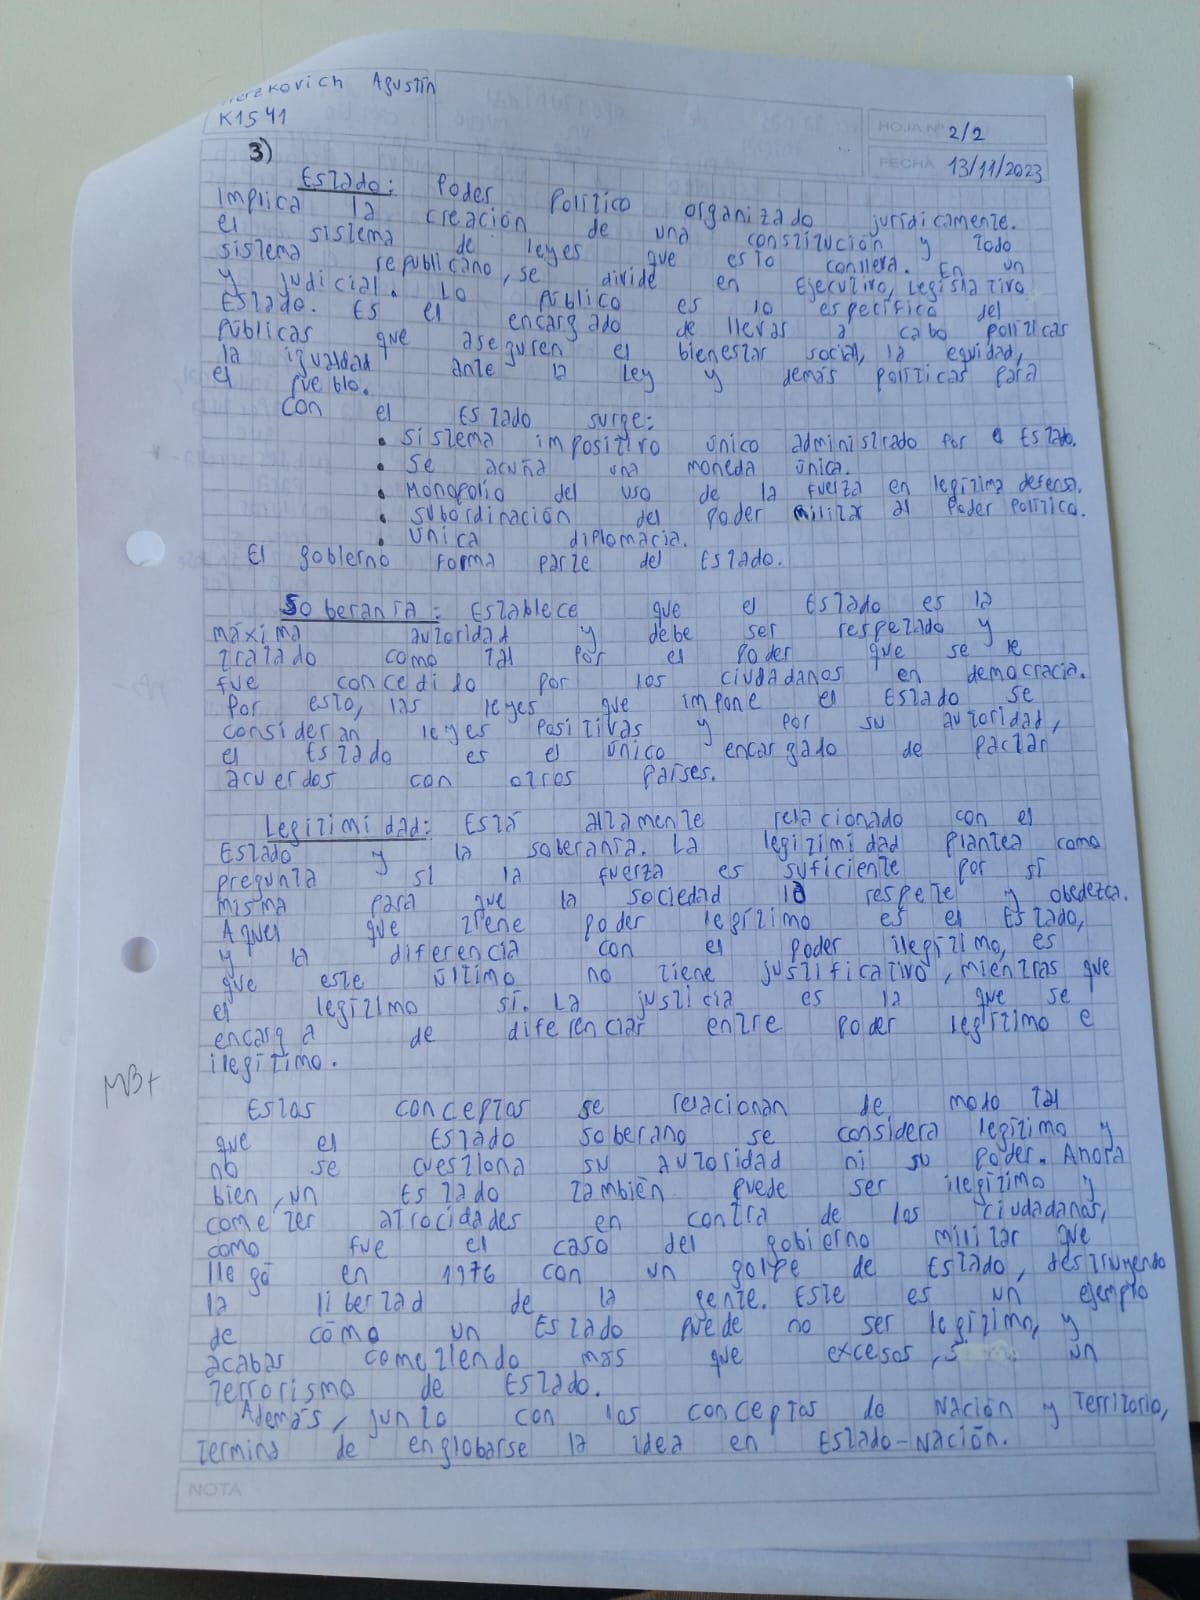 Agustín
K1541
HOJA Nº 2/2
FECHA 13/11/2023
3)
Estado: Poder Político organizado jurídicamente.
Implica la creación de una constitución y todo
el sistema de leyes que esto conlleva. En un
sistema republicano, se divide en Ejecutivo, Legislativo
y judicial. Lo público es lo específico del
Estado. Es el encargado de llevar a cabo políticas
públicas que aseguren el bienestar social, la equidad,
la igualdad ante la ley y demás políticas para
el pueblo.
Con el Estado surge:
• Sistema impositivo único administrado por el Estado.
• Se acuña una moneda única.
• Monopolio del uso de la fuerza en legítima defensa.
• Subordinación del Poder militar al Poder Político.
• única diplomacia.
El gobierno forma parte del Estado.
Soberanía: Establece que el Estado es la
máxima autoridad y debe ser respetado y
tratado como tal por el poder que se le
fue concedido por los ciudadanos en democracia.
Por esto, las leyes que impone el Estado se
consideran leyes positivas y por su autoridad,
el Estado es el único encargado de pactar
acuerdos con otros países.
Legitimidad: Está altamente relacionado con el
Estado y la soberanía. La legitimidad plantea como
pregunta si la fuerza es suficiente por sí
misma para que la sociedad lo respete y obedezca.
Aquel que tiene poder legítimo es el Estado,
y la diferencia con el poder ilegítimo, es
que este último no tiene justificativo, mientras que
el legítimo sí. La justicia es la que se
encarga de diferenciar entre poder legítimo e
ilegítimo.
MB+
Estos conceptos se relacionan de modo tal
que el Estado soberano se considera legítimo y
no se cuestiona su autoridad ni su poder. Ahora
bien, un Estado también puede ser ilegítimo y
cometer atrocidades en contra de los ciudadanos,
como fue el caso del gobierno militar que
llegó en 1976 con un golpe de Estado, destruyendo
la libertad de la gente. Este es un ejemplo
de cómo un Estado puede no ser legítimo, y
acabar cometiendo más que excesos, un
terrorismo de Estado.
Además, junto con los conceptos de Nación y Territorio,
termina de englobarse la idea en Estado-Nación.
NOTA